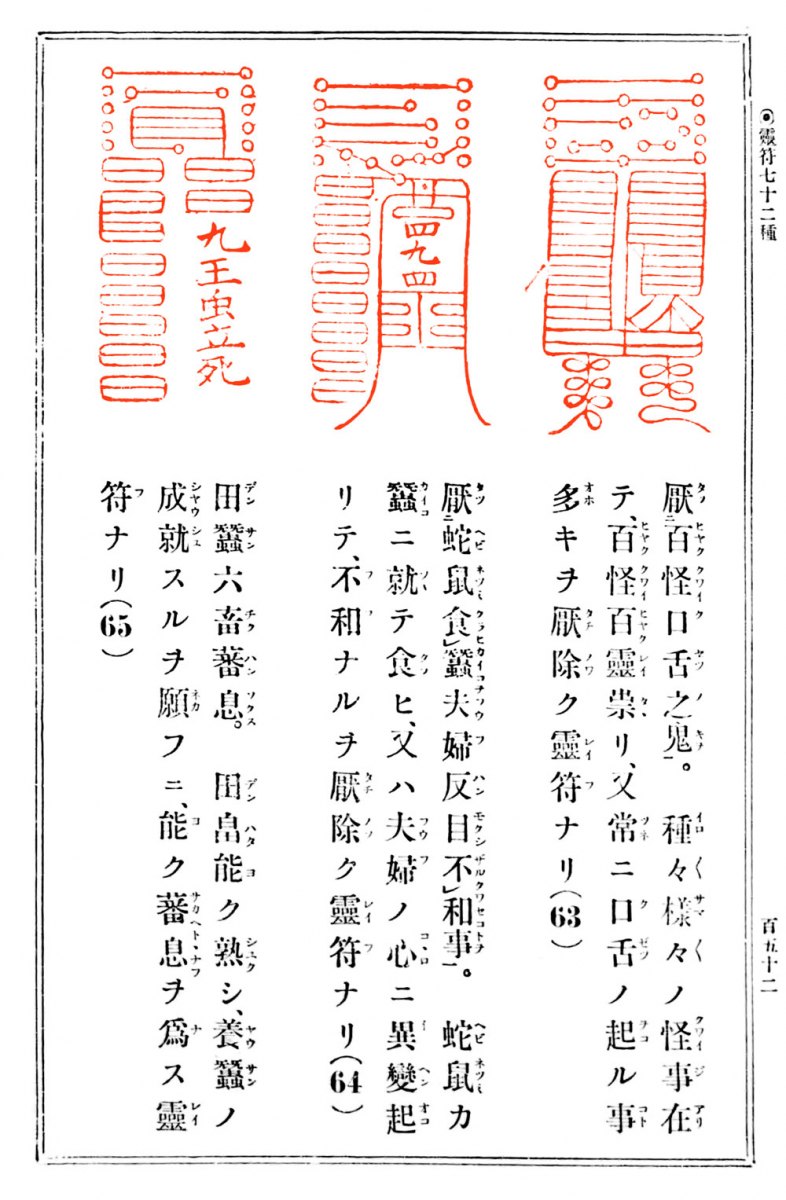 ◉靈符七十二種
厭百怪口舌之鬼。種々樣々ノ怪事在
テ、百怪百靈祟リ、又常ニ口舌ノ起ル事
多キヲ厭除ク靈符ナリ(63)
四九四
厭蛇鼠食蠶夫婦反目不和事。蛇鼠カ
蠶ニ就テ食ヒ、又ハ夫婦ノ心ニ異變起
リテ、不和ナルヲ厭除ク靈符ナリ(64)
九王虫立死
田蠶六畜蕃息。田畠能ク熟シ、養蠶ノ
成就スルヲ願フニ、能ク蕃息ヲ爲ス靈
符ナリ(65)
百五十二